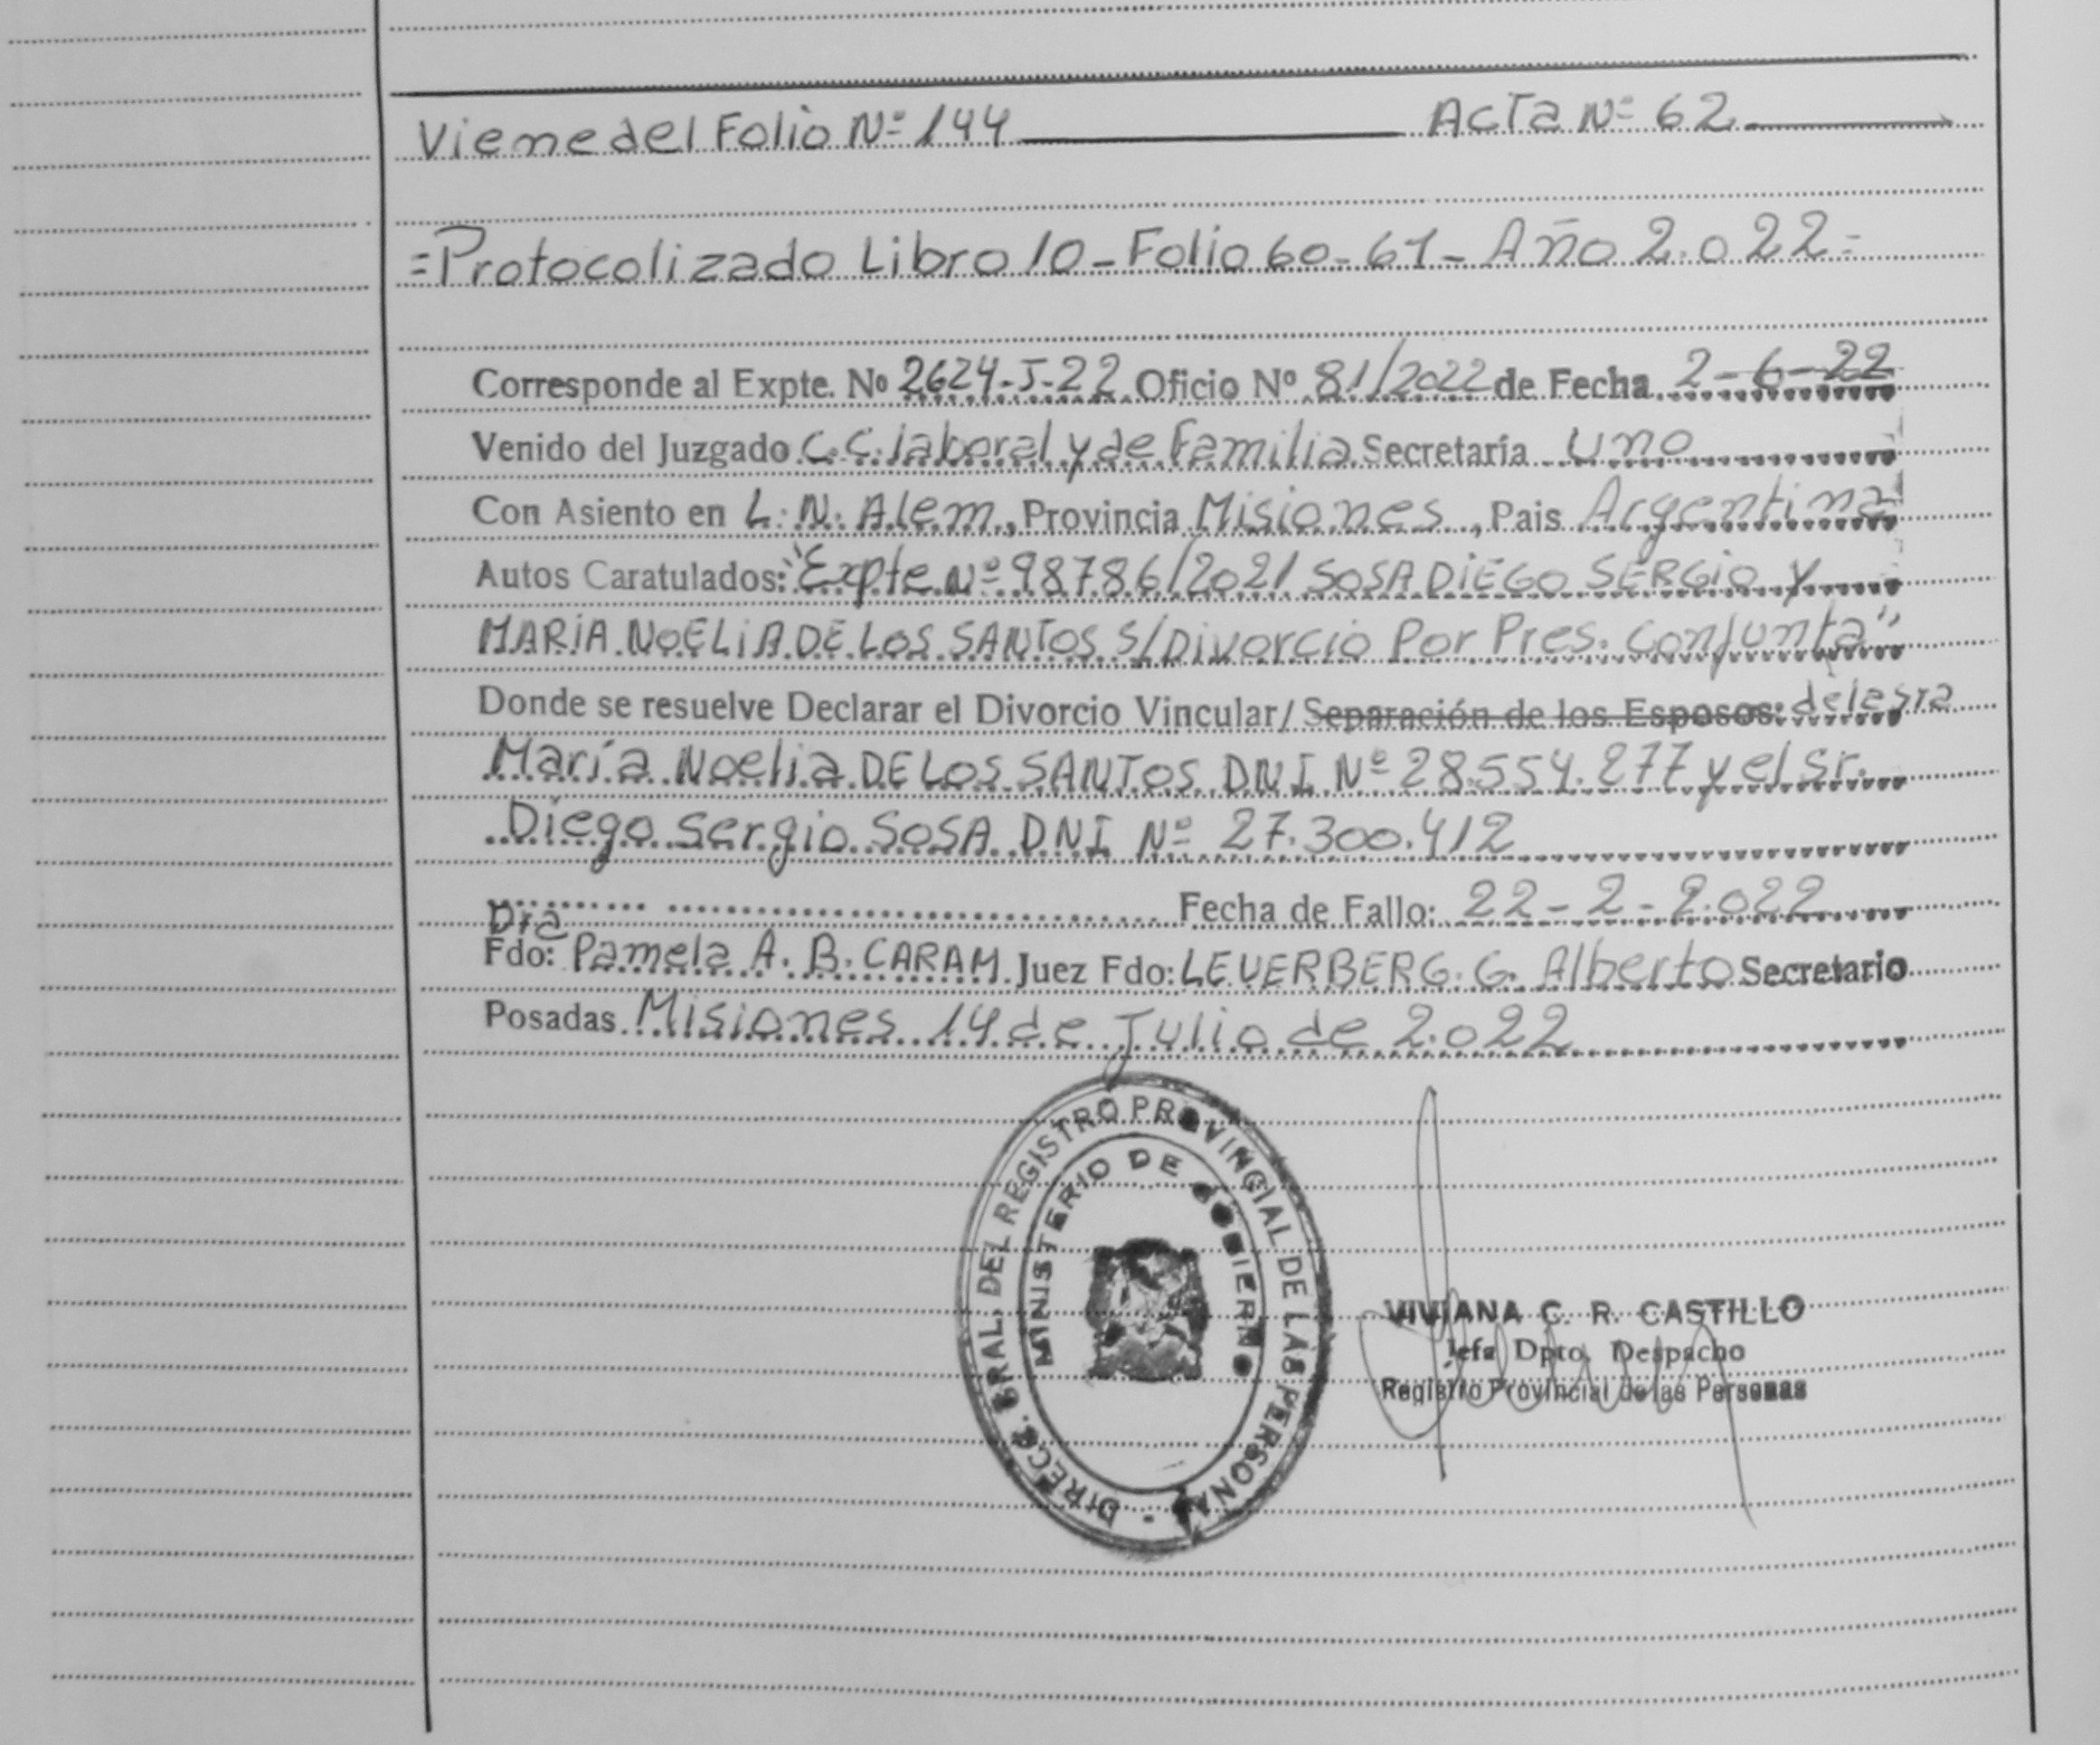 Viene del Folio Nº 144 Acta Nº 62
=Protocolizado Libro 10-Folio 60-61-Año 2.022=
Corresponde al Expte. Nº 2624-J-22 Oficio Nº 81/2022 de Fecha 2-6-22
Venido del Juzgado C.C. laboral y de Familia Secretaría uno
Con Asiento en L.N. Alem, Provincia Misiones, Pais Argentina
Autos Caratulados: "Expte Nº 98786/2021 SOSA DIEGO SERGIO Y
MARÍA NOELIA DE LOS SANTOS S/Divorcio Por Pres. Conjunta"
Donde se resuelve Declarar el Divorcio Vincular/ Separación de los Esposos: de la sra
María Noelia DE LOS SANTOS DNI Nº 28.554.277 y el sr.
Diego Sergio SOSA DNI Nº 27.300.412
Fecha de Fallo: 22-2-2.022
Dra
Fdo: Pamela A. B. CARAM Juez Fdo: LEVERBERG. G. Alberto Secretario
Posadas Misiones 14 de Julio de 2.022
DIRECC. GRAL. DEL REGISTRO PROVINCIAL DE LAS PERSONAS
MINISTERIO DE GOBIERNO
VIVIANA C. R. CASTILLO
Jefa Dpto. Despacho
Registro Provincial de las Personas